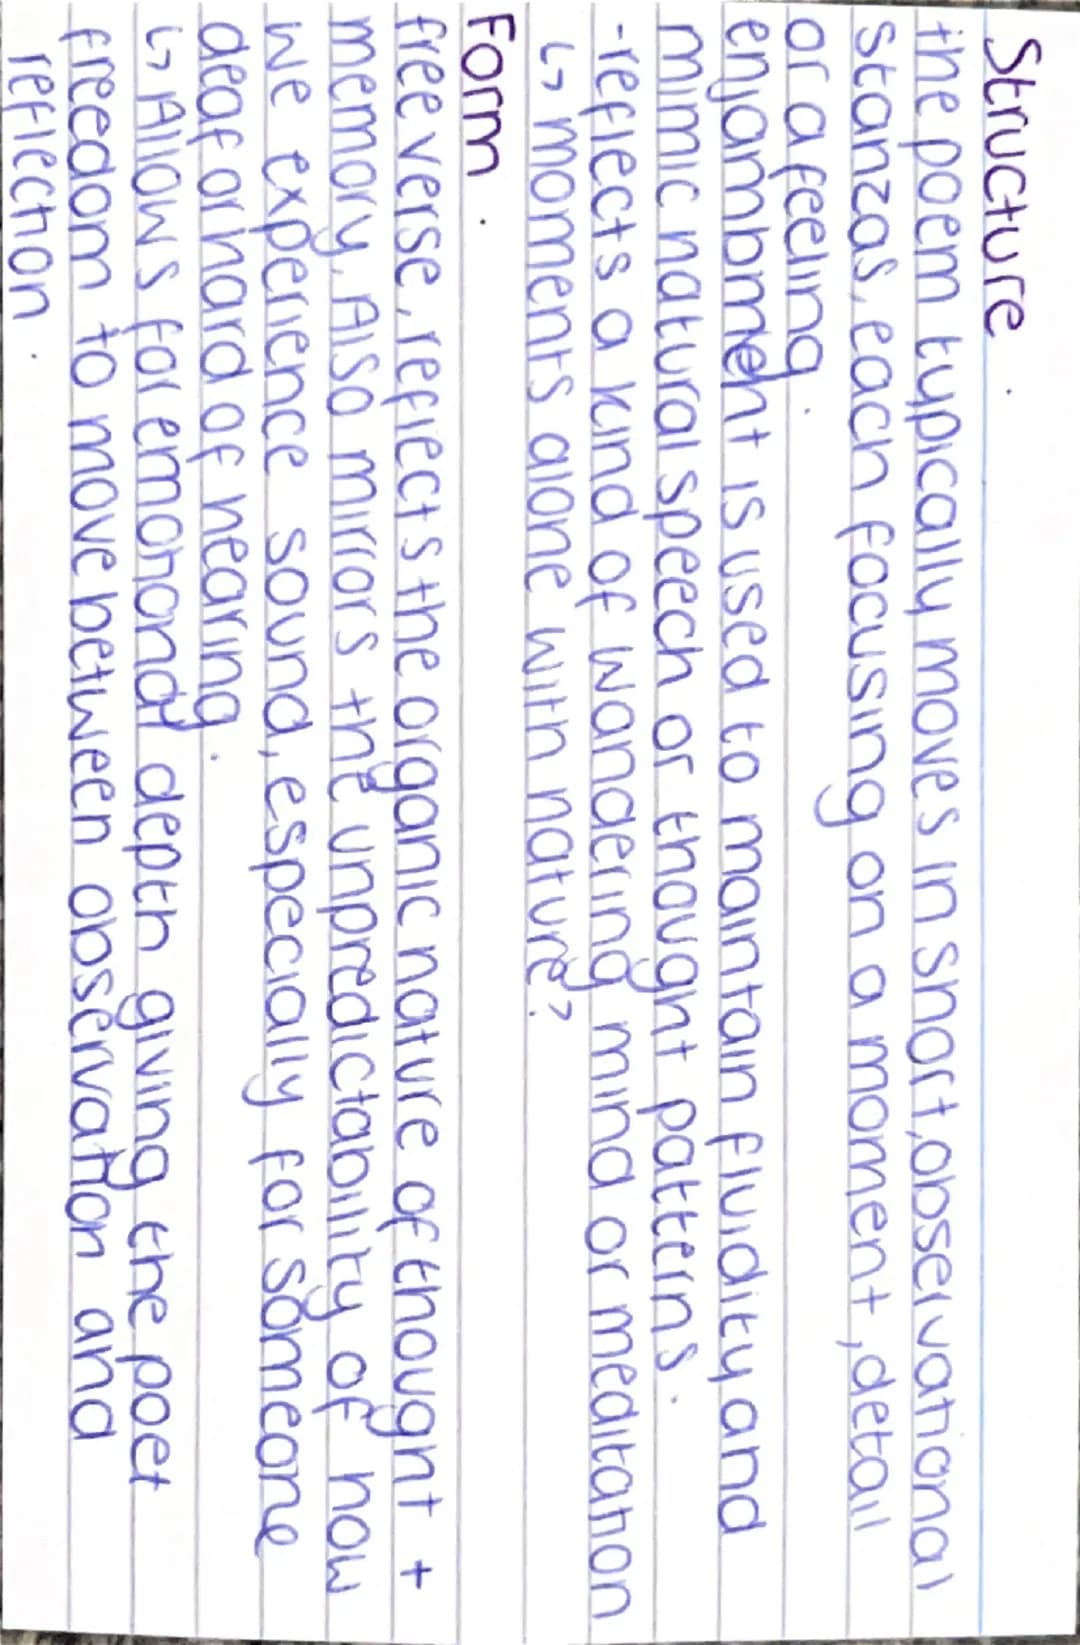 Structure.
the poem typically moves in short, observational
stanzas, each focusing on a moment, detail
or a feeling.
enjambment is used to maintain fluidity and
mimic natural speech or thought patterns.
-reflects a kind of wandering mind or meditation
↳ moments alone with nature?
Form.
free verse, reflects the organic nature of thought +
memory. Also mirrors the unpredictability of how
we experience sound, especially for someone
deaf or hard of hearing.
↳ Allows for emotional depth giving the poet
freedom to move between observation and
reflection.